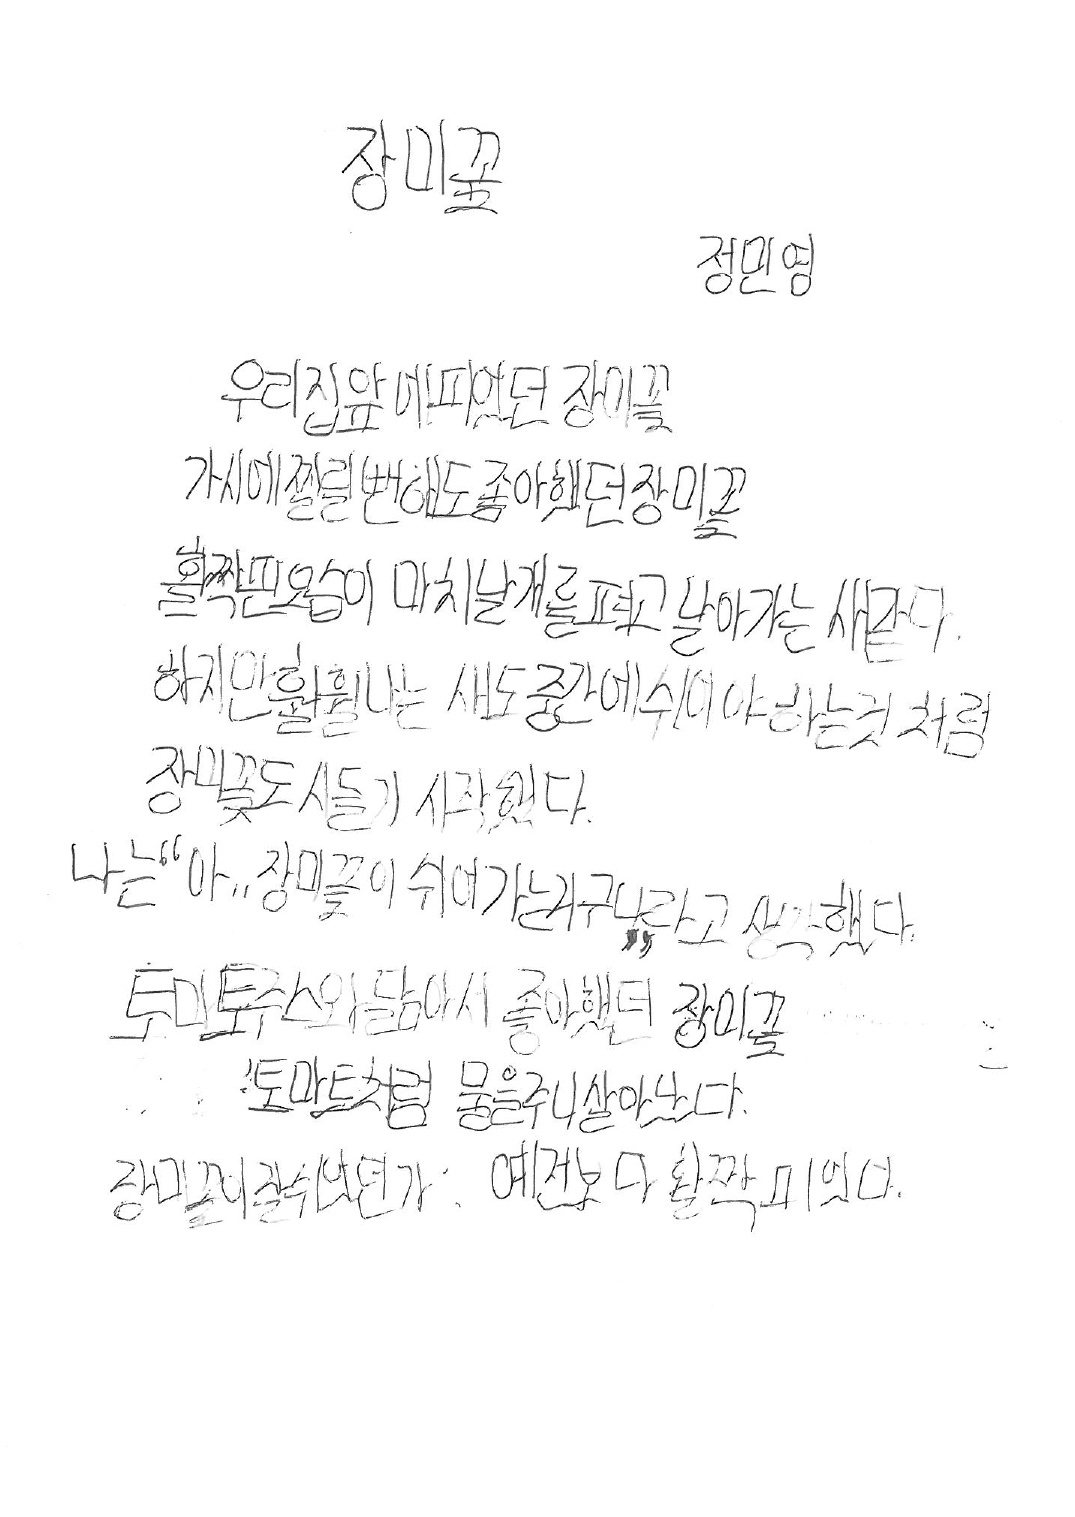 장미꽃
정민영
우리집앞에피었던 장미꽃
가시에찔릴번해도좋아했던장미꽃
활짝핀모습이 마치날개를펴고 날아가는 새같다.
하지만훨훨나는 새도중간에쉬어야하는것 처럼
장미꽃도시들기 시작했다.
나는“아..장미꽃이 쉬어가는거구나”라고 생각했다.
토마토주스와닮아서 좋아했던 장미꽃
토마토처럼 물을주니살아났다.
장미꽃이잘쉬었던가. 예전보다 활짝피었다.